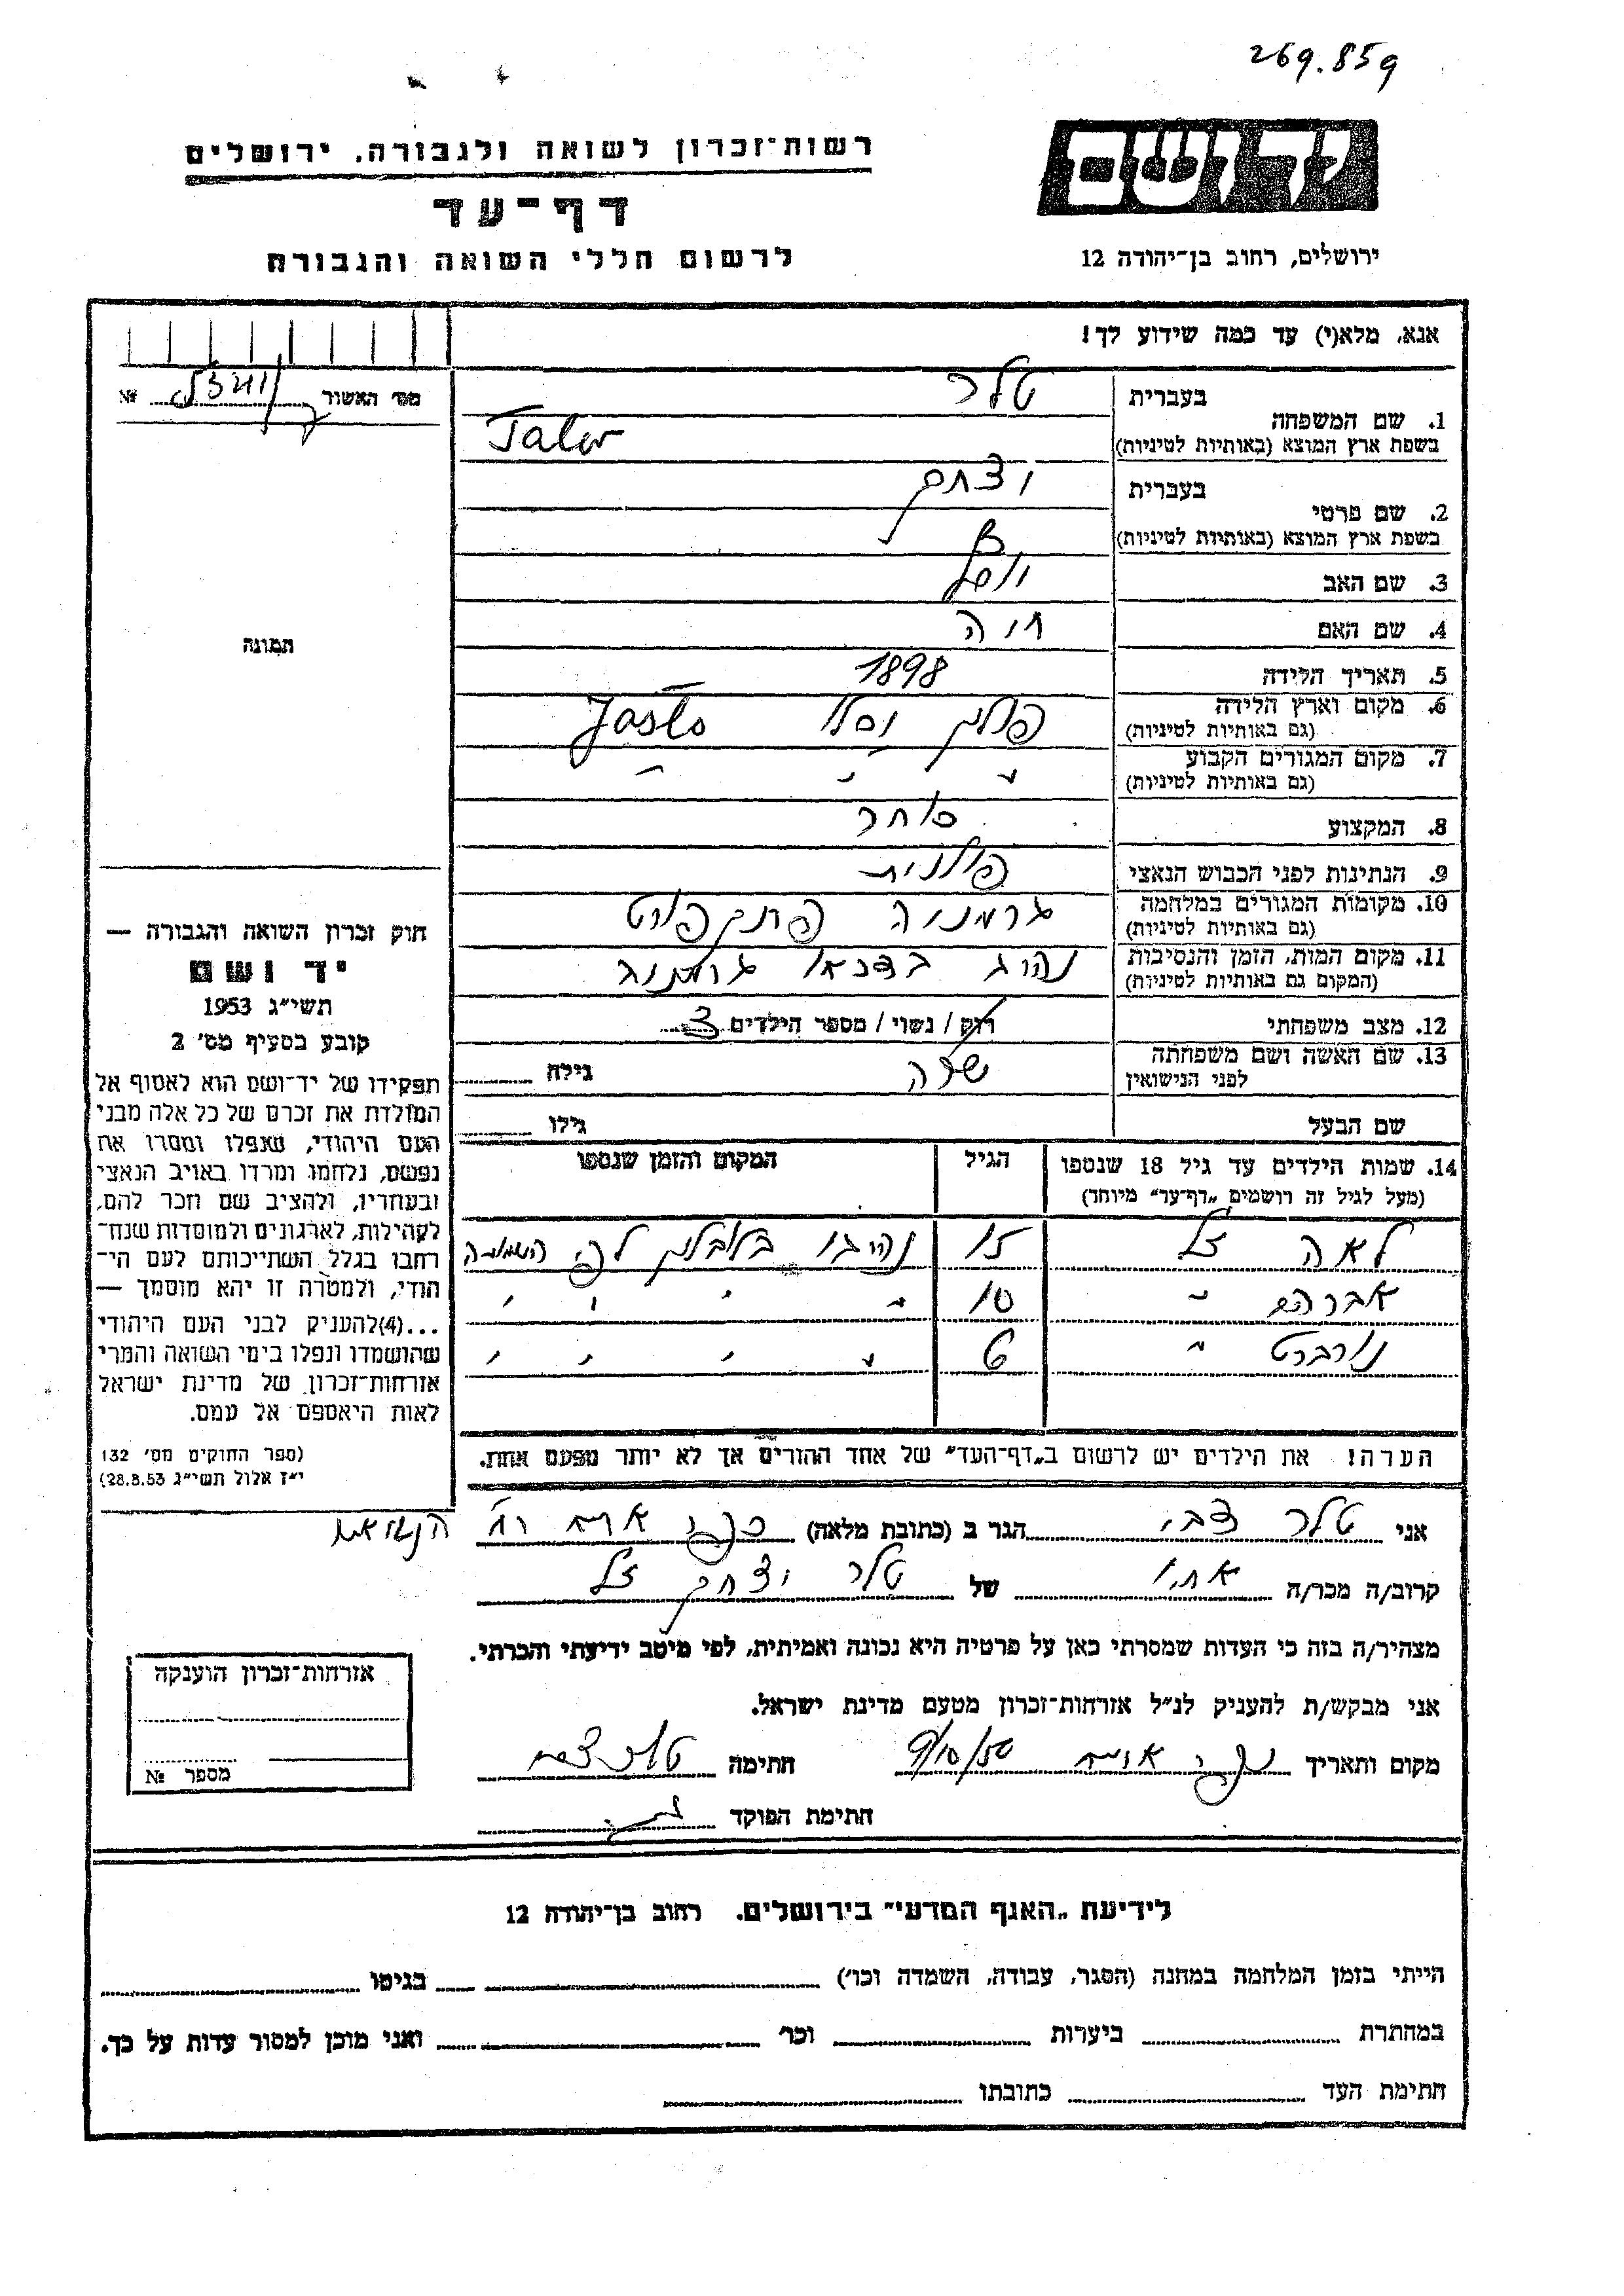 269.859
יד ושם
רשות־זכרון לשואה ולגבורה. ירושלים
דף־עד
לרשום חללי השואה והגבורה
ירושלים, רחוב בן־יהודה 12
אנא. מלא(י) עד כמה שידוע לך!
מס׳ האשור №
בעברית טלר
1. שם המשפחה
בשפת ארץ המוצא (באותיות לטיניות) Taler
בעברית יצחק
2. שם פרטי
בשפת ארץ המוצא (באותיות לטיניות)
3. שם האב יוסף
4. שם האם חיה
תמונה
5. תאריך הלידה 1898
6. מקום וארץ הלידה פולין יסלו Jasło
(גם באותיות לטיניות)
7. מקום המגורים הקבוע ״ ״ ״
(גם באותיות לטיניות)
8. המקצוע סוחר
9. הנתינות לפני הכבוש הנאצי פולנית
10. מקומות המגורים במלחמה גרמניה פרנקפורט
(גם באותיות לטיניות)
11. מקום המות. הזמן והנסיבות נהרג בדכאו גרמניה
(המקום גם באותיות לטיניות)
12. מצב משפחתי רוק / נשוי / מספר הילדים 3
13. שם האשה ושם משפחתה שרה גילה
לפני הנישואין
שם הבעל גילו
14. שמות הילדים עד גיל 18 שנספו הגיל המקום והזמן שנספו
(מעל לגיל זה רושמים „דף־עד״ מיוחד)
לאה ז״ל 15 נהרגו בלובלין השמדה
אברהם ״ 10 ״ ״ ״ ״
נורברט ״ 6 ״ ״ ״ ״
הערה! את הילדים יש לרשום ב„דף־העד״ של אחד ההורים אך לא יותר מפעם אחת.
חוק זכרון השואה והגבורה —
יד ושם
תשי״ג 1953
קובע בסעיף מס׳ 2
תפקידו של יד־ושם הוא לאסוף אל
המולדת את זכרם של כל אלה מבני
העם היהודי, שנפלו ומסרו את
נפשם, נלחמו ומרדו באויב הנאצי
ובעוזריו, ולהציב שם וזכר להם,
לקהילות, לארגונים ולמוסדות שנח־
רבו בגלל השתייכותם לעם הי־
הודי, ולמטרה זו יהא מוסמך —
...(4)להעניק לבני העם היהודי
שהושמדו ונפלו בימי השואה והמרי
אזרחות־זכרון של מדינת ישראל
לאות היאספם אל עמם.
(ספר החוקים מס׳ 132
י״ז אלול תשי״ג 28.8.53)
אני טלר צבי הגר ב (כתובת מלאה)
קרוב/ה מכר/ה אחיו של טלר יצחק ז״ל
מצהיר/ה בזה כי העדות שמסרתי כאן על פרטיה היא נכונה ואמיתית, לפי מיטב ידיעתי והכרתי.
אני מבקש/ת להעניק לנ״ל אזרחות־זכרון מטעם מדינת ישראל.
מקום ותאריך חתימה טלר צבי
חתימת הפוקד
אזרחות־זכרון הוענקה
מספר №
לידיעת „האגף המדעי״ בירושלים. רחוב בן־יהודה 12
הייתי בזמן המלחמה במחנה (הסגר, עבודה, השמדה וכו׳) בגיטו
במחתרת ביערות וכו׳ ואני מוכן למסור עדות על כך.
חתימת העד כתובתו